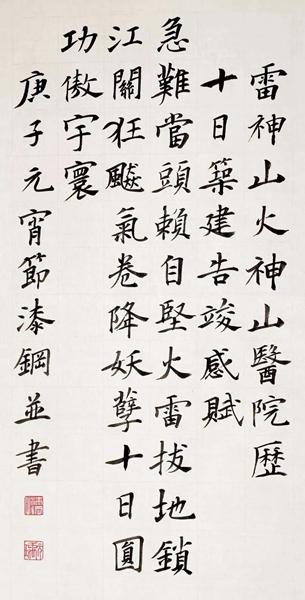 雷神山火神山醫院歷
十日築建告竣感賦
急難當頭賴自堅火雷拔地鎖
江關狂飈氣卷降妖孽十日圓
功傲宇寰
庚子元宵節漆鋼並書